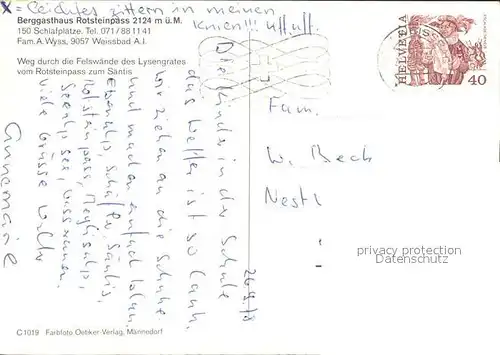 X = Leichtes zittern in meinen
Knien!!! uff.uff.
Berggasthaus Rotsteinpass 2124 m ü. M.
150 Schlafplätze. Tel. 071/88 11 41
Fam. A. Wyss, 9057 Weissbad A.I.
Weg durch die Felswände des Lysengrates
vom Rotsteinpass zum Säntis
HELVETIA
40
Die Kinder in der Schule
das Wetter ist so
wir ziehen an die Schuhe
und machen einfach blau.
Ebenalp, Schäfler, Säntis,
Rotsteinpass, Meglisalp,
Seealpsee, Wasserauen.
viele Grüsse
Annemarie
Fam.
W. Beck
Nestl
privacy protection
DELCAMPE.NET
C 1019 Farbfoto Oetiker-Verlag, Männedorf